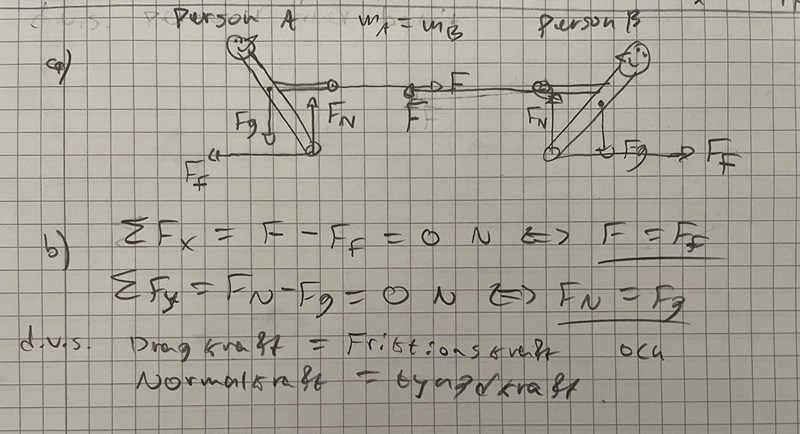 Person A m_A = m_B Person B
a)
F F
F_N F_N
F_g F_g
F_f F_f
b) ΣF_x = F - F_f = 0 N <=> F = F_f
ΣF_y = F_N - F_g = 0 N <=> F_N = F_g
d.v.s. Dragkraft = Friktionskraft och
Normalkraft = tyngdkraft.